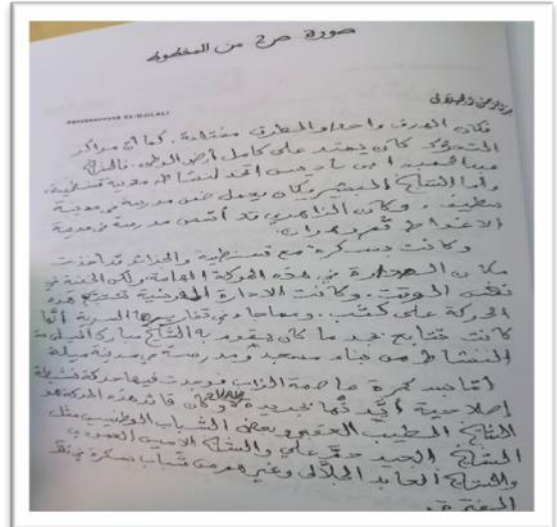 صورة ص2 من المخطوط
عبد الرحمن الجيلالي
ABDERRAHMANE EL-DJILALI
فكان الهدف واحد والطرق مختلفة. كما أن مراكز
التحرك كان يعتمد على كامل أرض الوطن. فالشيخ
عبد الحميد ابن باديس اتخذ لنشاطه مدينة قسنطينة.
وأما الشيخ البشير فكان يعمل ضمن مدرسة في مدينة
سطيف. وكان الزاهري قد أسس مدرسة في مدينة
الاغواط ثم وهران.
وكانت بسكرة مع قسنطينة والجزائر قد أخذت
مكان الصدارة في هذه الحركة الهامة ولكن الحقة في
نفس الوقت. وكانت الادارة الفرنسية تتتبع هذه
الحركة على كثب. ومما جاء في تقاريرها السرية أنها
كانت تتابع بجد ما كان يقوم به الشيخ مبارك الميلي من
النشاط من بناء مسجد ومدرسة في مدينة ميلة
أما بسكرة عاصمة الزاب فوجدت فيها حركة نشيطة
إصلاحية أيدتها جريدة وكان قائد هذه الحركة هو
الشيخ الطيب العقبي وبعض الشباب الوطنيين مثل
الشيخ علي والشيخ الامين العمودي
والشيخ العابد الجلالي وغيرهم من شباب بسكرة في تلك
الفترة.